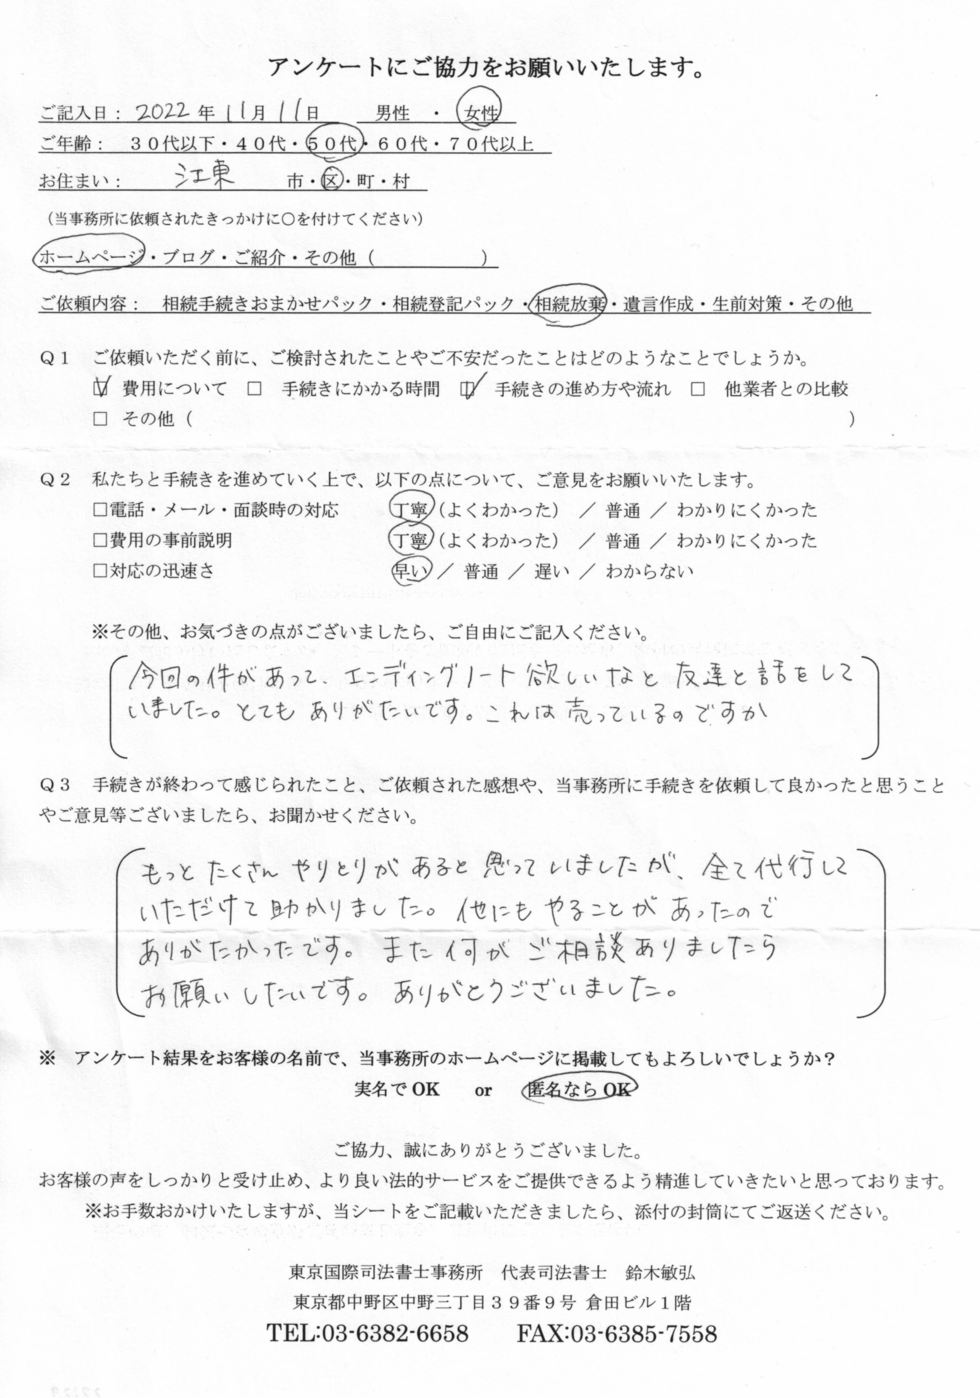 アンケートにご協力をお願いいたします。
ご記入日： 2022 年 11 月 11 日　男性　・　女性
ご年齢：　３０代以下・４０代・５０代・６０代・７０代以上
お住まい：　江東　市・区・町・村
（当事務所に依頼されたきっかけに○を付けてください）
ホームページ・ブログ・ご紹介・その他（　　　　　　）
ご依頼内容：　相続手続きおまかせパック・相続登記パック・相続放棄・遺言作成・生前対策・その他
Ｑ１　ご依頼いただく前に、ご検討されたことやご不安だったことはどのようなことでしょうか。
☑ 費用について　□ 手続きにかかる時間　☑ 手続きの進め方や流れ　□ 他業者との比較
□ その他（　　　　　　　　　　）
Ｑ２　私たちと手続きを進めていく上で、以下の点について、ご意見をお願いいたします。
□電話・メール・面談時の対応　丁寧（よくわかった）　／ 普通 ／ わかりにくかった
□費用の事前説明　丁寧（よくわかった）　／ 普通 ／ わかりにくかった
□対応の迅速さ　早い ／ 普通 ／ 遅い ／ わからない
※その他、お気づきの点がございましたら、ご自由にご記入ください。
今回の件があって、エンディングノート欲しいなと友達と話をして
いました。とてもありがたいです。これは売っているのですか
Ｑ３　手続きが終わって感じられたこと、ご依頼された感想や、当事務所に手続きを依頼して良かったと思うこと
やご意見等ございましたら、お聞かせください。
もっとたくさんやりとりがあると思っていましたが、全て代行して
いただけて助かりました。他にもやることがあったので
ありがたかったです。また何がご相談ありましたら
お願いしたいです。ありがとうございました。
※　アンケート結果をお客様の名前で、当事務所のホームページに掲載してもよろしいでしょうか？
実名でOK　or　匿名ならOK
ご協力、誠にありがとうございました。
お客様の声をしっかりと受け止め、より良い法的サービスをご提供できるよう精進していきたいと思っております。
※お手数おかけいたしますが、当シートをご記載いただきましたら、添付の封筒にてご返送ください。
東京国際司法書士事務所　代表司法書士　鈴木敏弘
東京都中野区中野三丁目３９番９号 倉田ビル１階
TEL:03-6382-6658　FAX:03-6385-7558